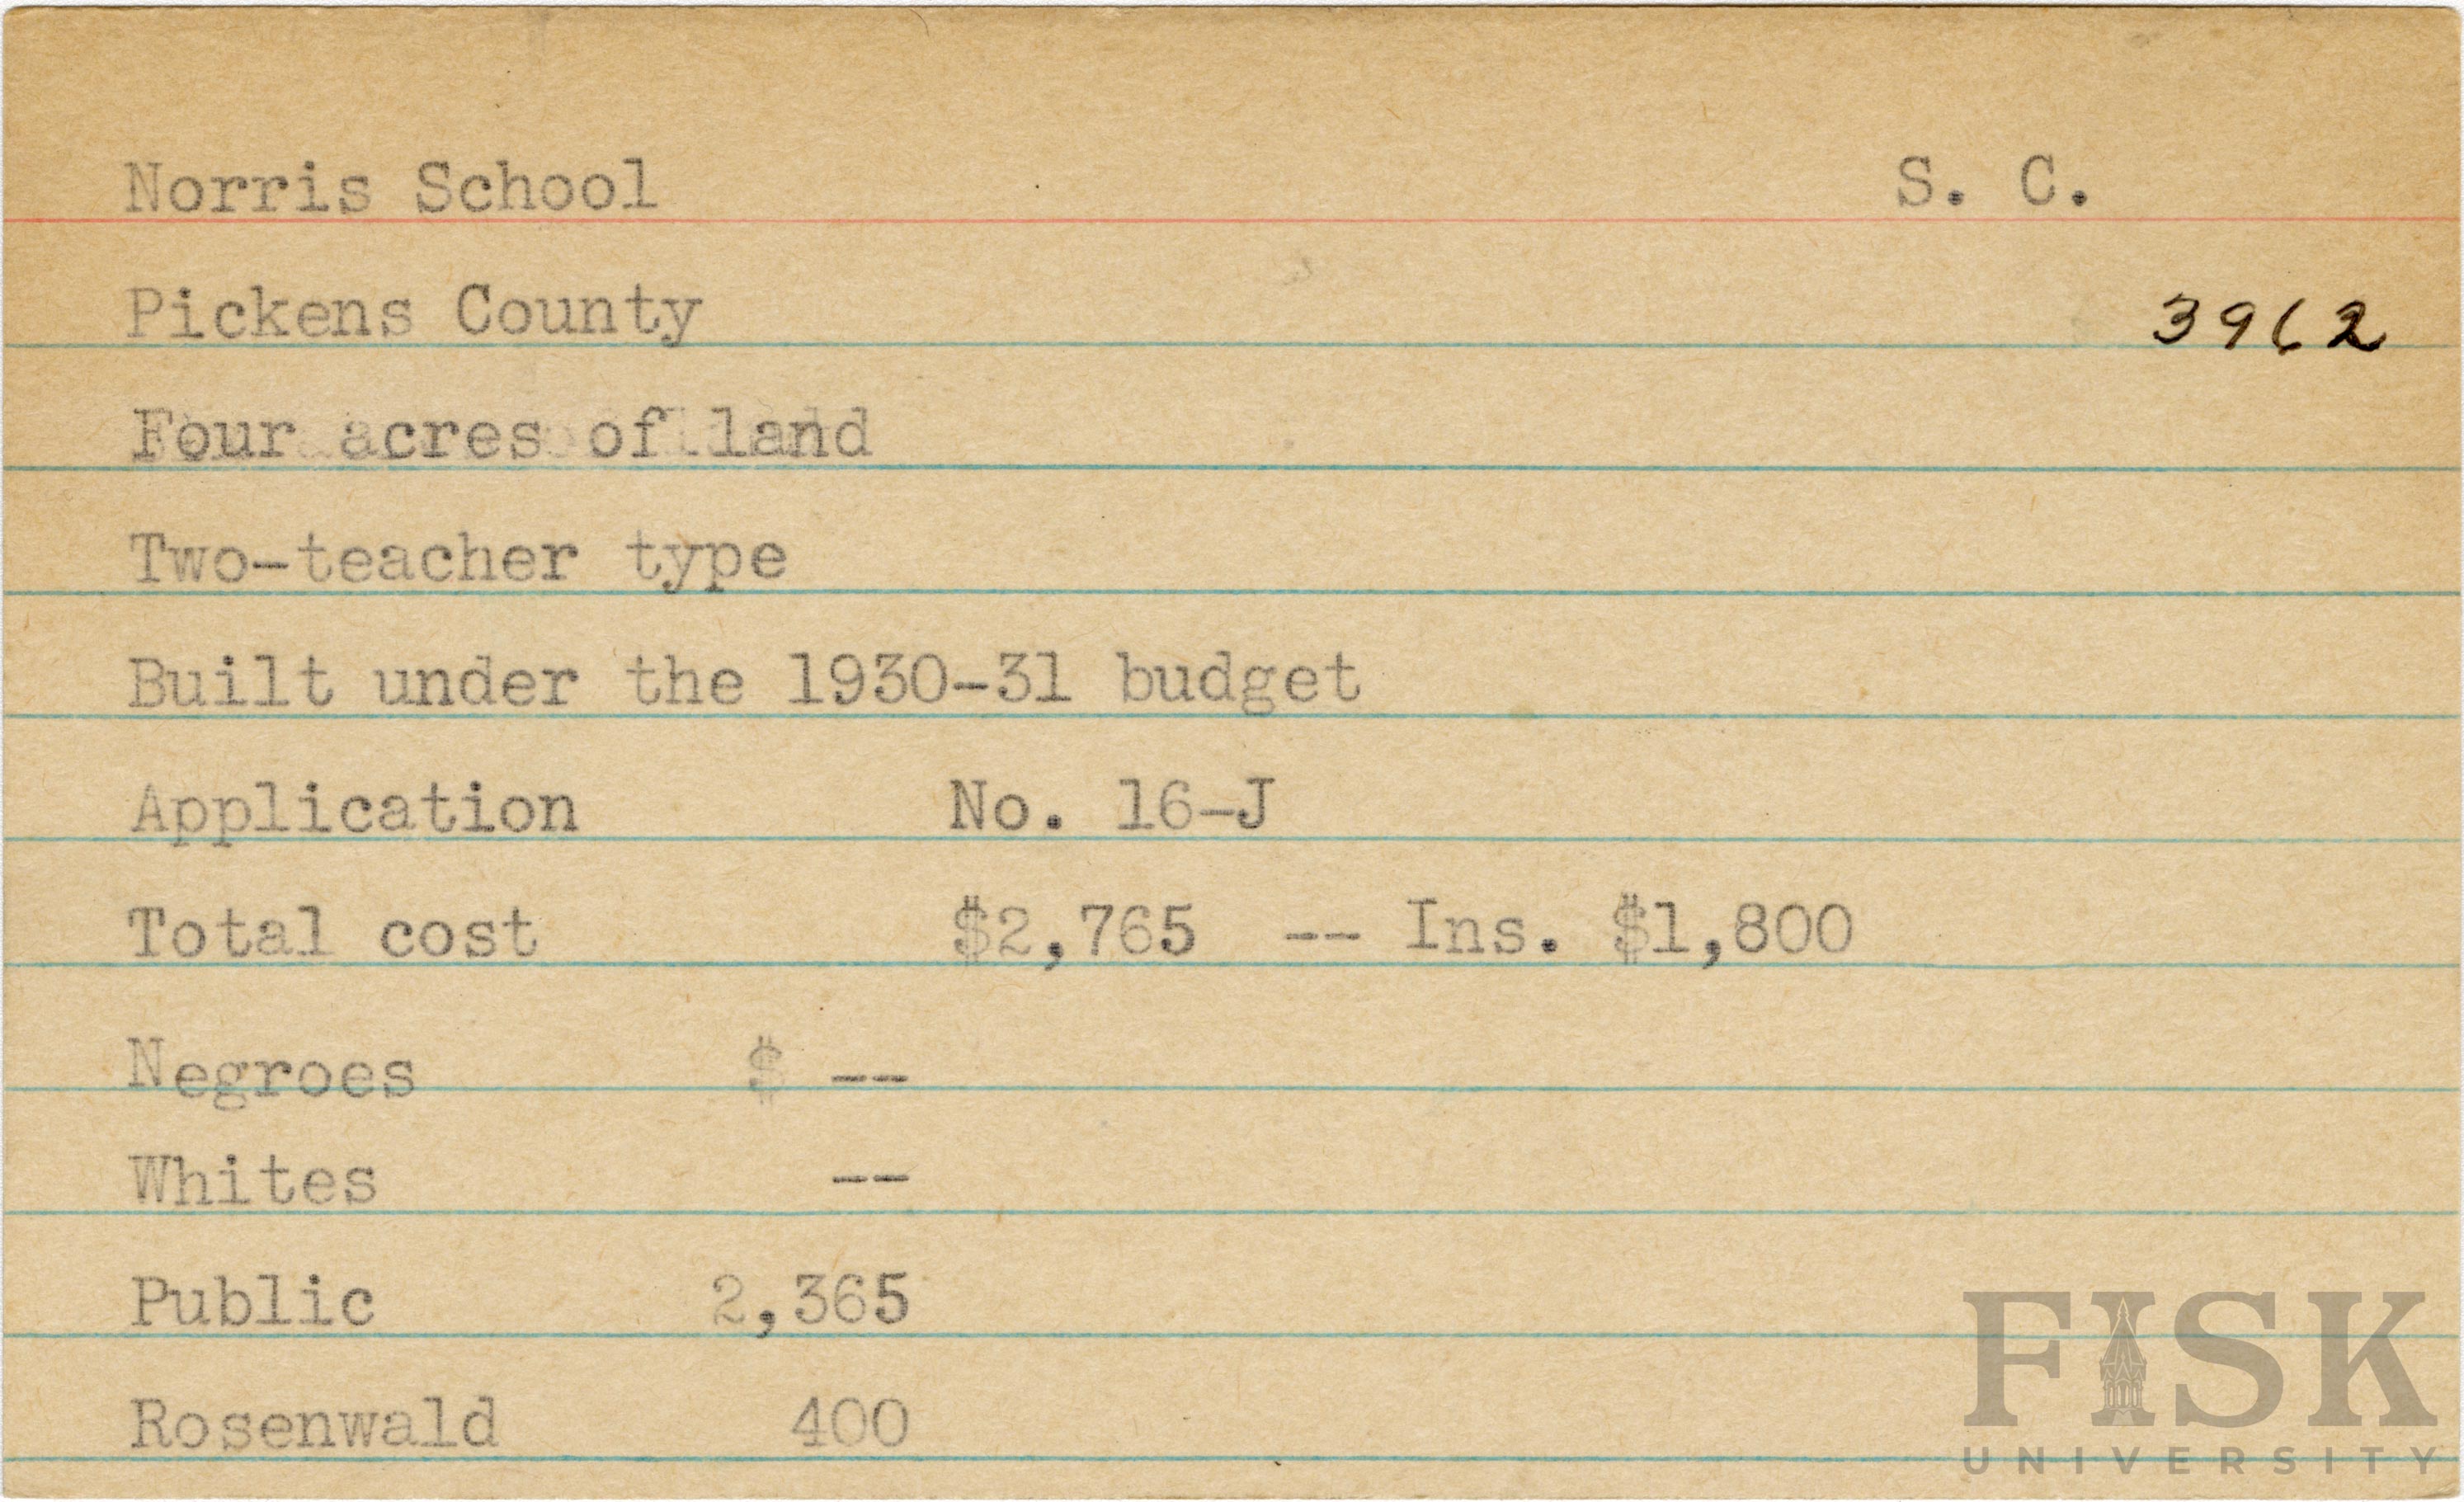 Norris School S. C.
Pickens County 3962
Four acres of land
Two-teacher type
Built under the 1930-31 budget
Application No. 16-J
Total cost $2,765 -- Ins. $1,800
Negroes $ --
Whites --
Public 2,365
Rosenwald 400
FISK
UNIVERSITY